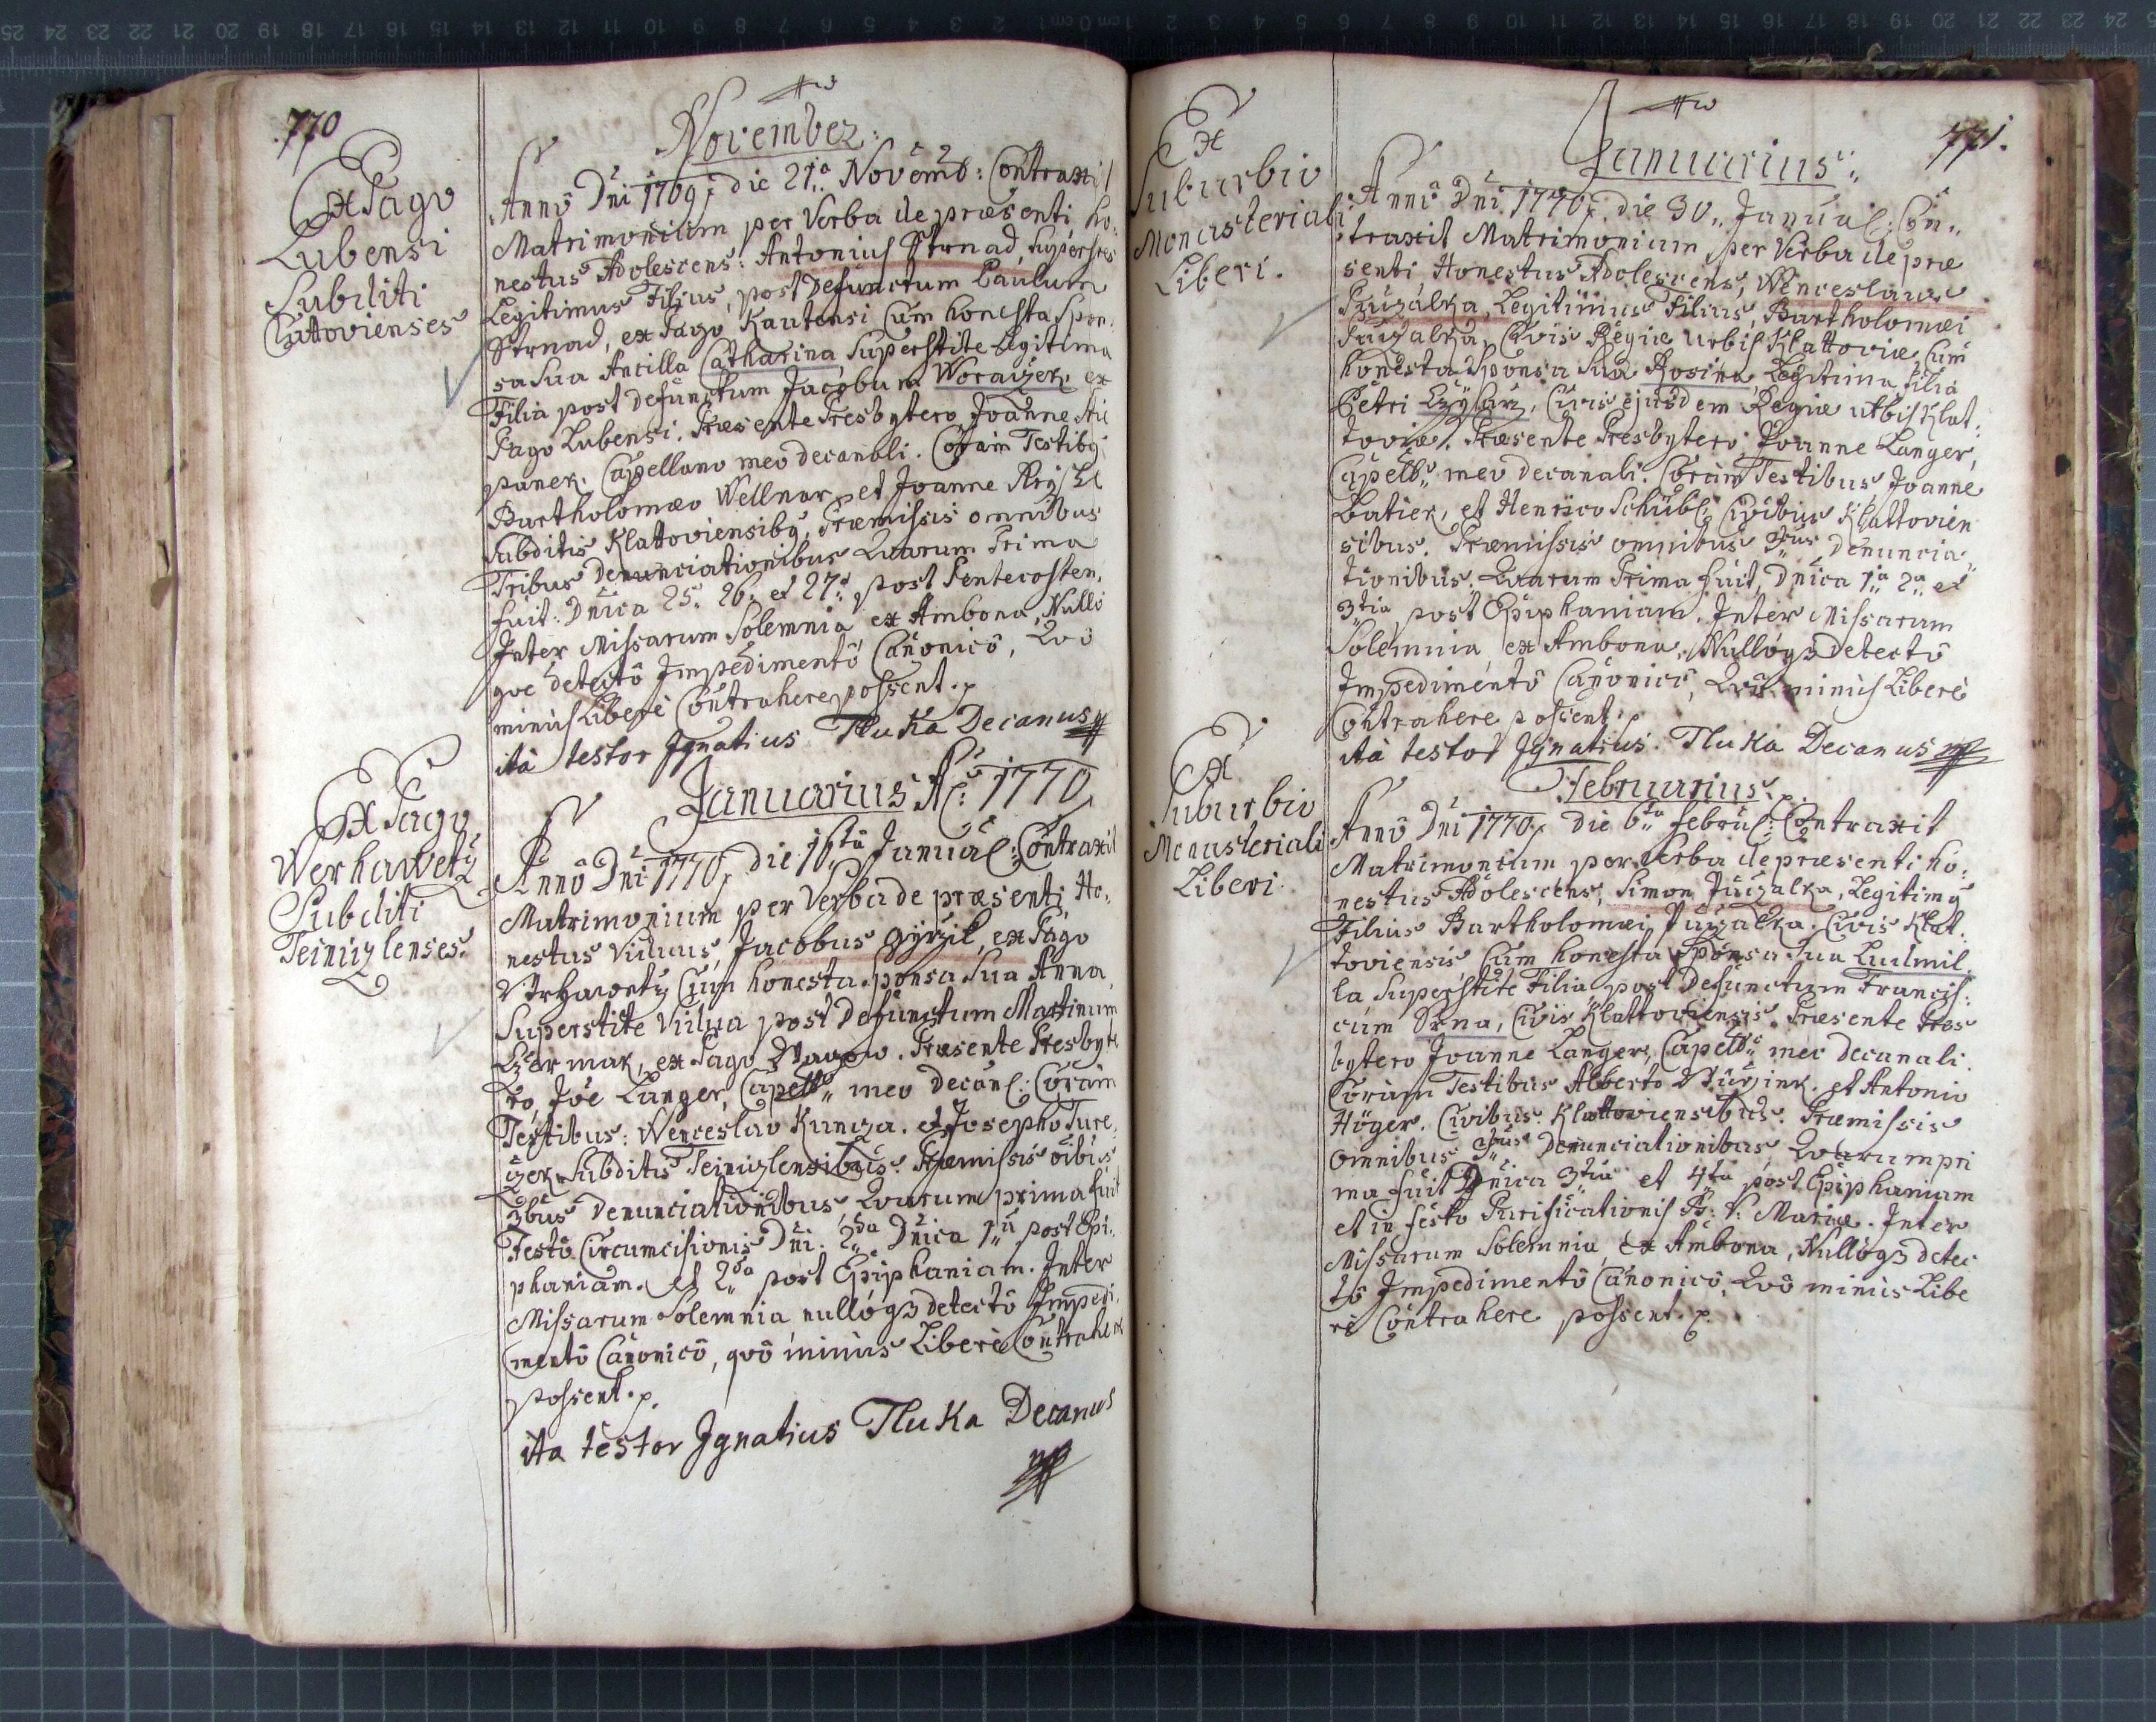 770
November.
Ex Pago
Lubensi
Subditi
Glattovienses
Annô Dni 1769. die 21.a Novemb: Contraxit
Matrimonium per Verba de præsenti ho:
nestus Adolescens: Antonius Strnad, Superstes
Legitimus Filius, post Defunctum Paulum
Strnad, ex Pago Kautensi Cum honesta Spon:
sa Sua Ancilla Catharina Superstite Legitima
Filia post defunctum Jacobum Woraczek ex
Pago Lubensi. Præsente Presbytero Joanne
panek. Capellano meo decanali. Coram Testibq
Bartholomæo Wellnar, et Joanne
Subditis Klattoviensibq, Præmissis omnibus
Tribus Denunciationibus Quarum Prima
fuit: Dnica 25. 26. et 27. post Pentecosten.
Inter Missarum Solemnia ex Ambona, Nullo
que detectô Impedimentô Canonicô, Quo
minus Liberè Contrahere possent. p.
ità testor Ignatius Tluka Decanus mp
Januarius A: 1770
Ex Pago
Werhawetz
Subditi
Teinizlenses.
Annô Dni 1770. die 16ta Janual: Contraxit
Matrimonium per Verba de præsenti Ho:
nestus Viduus, Jacobus Gyrzik, ex Pago
Wrhawetz Cum honesta sponsa Sua Anna,
Superstite Vidua post Defunctum Martinum
Czermak, ex Pago . Præsente Presbyte
ro, Joe Langer, Capell: meo Decanl: Coram
Testibus: Wenceslao Kuncza. et Josepho Ture
czek Subditis Teinizlensibus. Præmissis oibus
3bus Denunciationibus, Quarum prima fuit
Festô Circumcisionis Dni. 2da Dnica 1.a post Epi:
phaniam. et 2da post Epiphaniam. Inter
Missarum Solemnia nullôq3 detectô Impedi:
mentô Canonicô, quô minus Liberè Contrahere
possent. p.
ita testor Ignatius Tluka Decanus
mp
771.
Januarius.
Ex
Suburbio
Monasteriali
Liberi.
Annô Dni 1770. die 30. Janual: Con:
traxit Matrimonium per Verba de præ
senti Honestus Adolescens, Wenceslaus
Legitimus Filius, Bartholomæi
Civis Regiæ Urbis Klattoviæ Cum
honesta Sponsa Sua Rosina Legitima filia
Petri Czysarz, Civis ejusdem Regiæ urbis Klat:
toviæ. Præsente Presbytero Joanne Langer,
Capell: meo decanali. Coram Testibus, Joanne
Batier, et Henrico Civibus Klattovien
sibus. Præmissis omnibus 3bus denuncia:
tionibus, Quarum Prima fuit, Dnica 1.a 2.a et
3tia post Epiphaniam. Inter Missarum
Solemnia, ex Ambona, Nullôq3 detectô
Impedimentô Canonicô, Quô minus Liberè
Contrahere possent. p.
ità testor Ignatius Tluka Decanus mp
Februarius.
Ex
Suburbio
Monasteriali
Liberi.
Annô Dni 1770. die 6ta Februl: Contraxit
Matrimonium per Verba de præsenti ho:
nestus Adolescens, Simon Legitimq
Filius Bartholomæi Civis Klat:
toviensis Cum honesta Sponsa sua Ludmil
la Superstite Filia post Defunctum Francis:
cum Srna, Civis Klattoviensis. Præsente Pres
bytero Joanne Langer, Capell: meo decanali.
Coram Testibus Alberto et Antonio
Höger. Civibus Klattoviensibus. Præmissis
omnibus 3bus Denunciationibus Quarum pri
ma fuit Dnica 3tia et 4ta post Epiphaniam
et in festo Purificationis B: V: Mariæ. Inter
Missarum Solemnia, ex Ambona, Nullôq3 detec
tô Impedimentô Canonicô, Quô minus Libe
rè Contrahere possent. p.